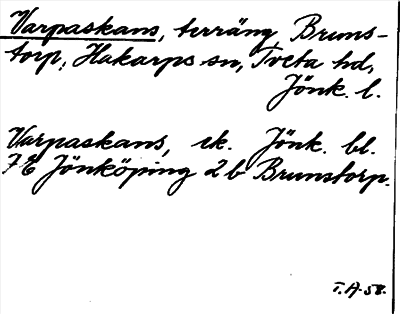 Varpaskans, terräng Bruns-
torp, Hakarps sn, Tveta hd,
Jönk. l.
Varpaskans, ek. Jönk. bl.
7E Jönköping 2b Brunstorp.
T.A. 58.